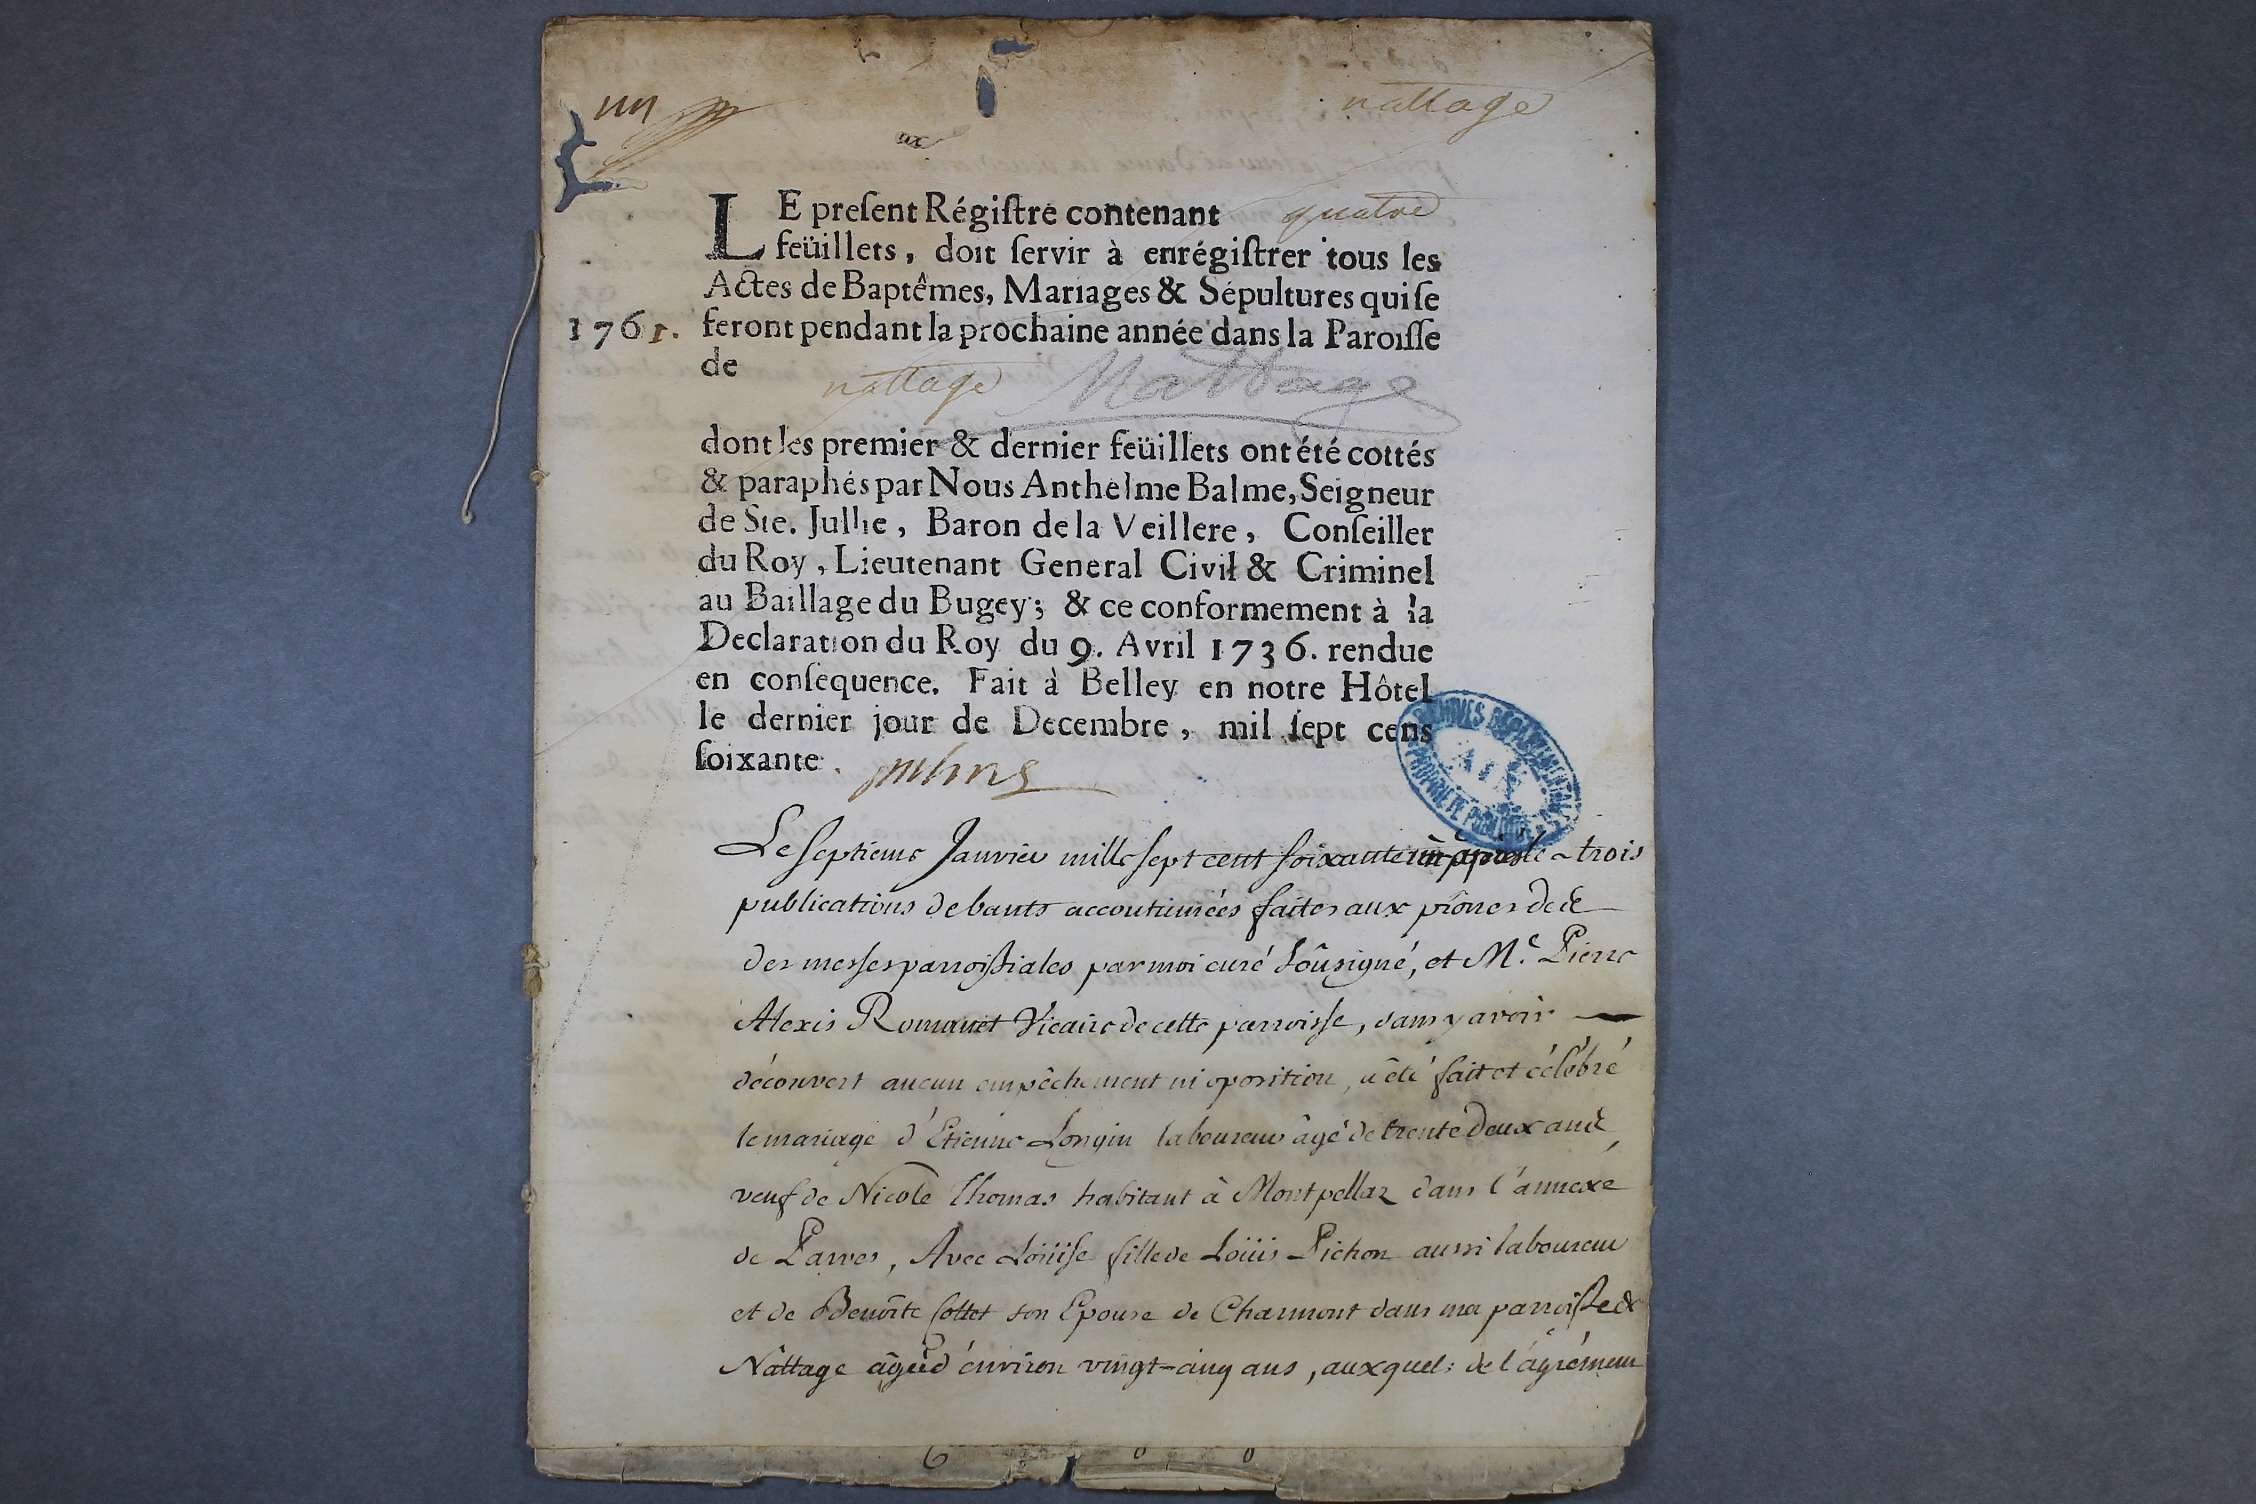 nattage
LE preſent Régiſtre contenant quatre
feüillets, doit ſervir à enrégiſtrer tous les
Actes de Baptêmes, Mariages & Sépultures qui ſe
1761. feront pendant la prochaine année dans la Paroiſſe
de nattage Nattage
dont les premier & dernier feüillets ont été cottés
& paraphés par Nous Anthelme Balme, Seigneur
de Ste. Jullie, Baron de la Veillere, Conſeiller
du Roy, Lieutenant General Civil & Criminel
au Baillage du Bugey; & ce conformement à la
Declaration du Roy du 9. Avril 1736. rendue
en conſequence. Fait à Belley en notre Hôtel
le dernier jour de Decembre, mil ſept cens
ſoixante.
ARCHIVES DEPARTEMENTALES
AIN
PROPRIETE PUBLIQUE
Le septieme Janvier mille sept cent soixante un après le trois
publications de bants accoutumées faites aux prônes de
des messes parroissiales par moi curé soûsigné, et Mᵉ. Pierre
Alexis Romanet Vicaire de cette parroisse, sans y avoir
découvert aucun empêchement ni oposition, a êté fait et célébré
le mariage d'Etienne Longin laboureur âgé de trente deux ans,
veuf de Nicole Thomas habitant à Montpellaz dans l'annexe
de Parves, Avec Loüise fille de Loüis Pichon aussi laboureur
et de Benoîte Collet son Epouse de Charmont dans ma parroisse de
Nâttage âgée d'énviron vingt-cinq ans, auxquels de l'ágrément